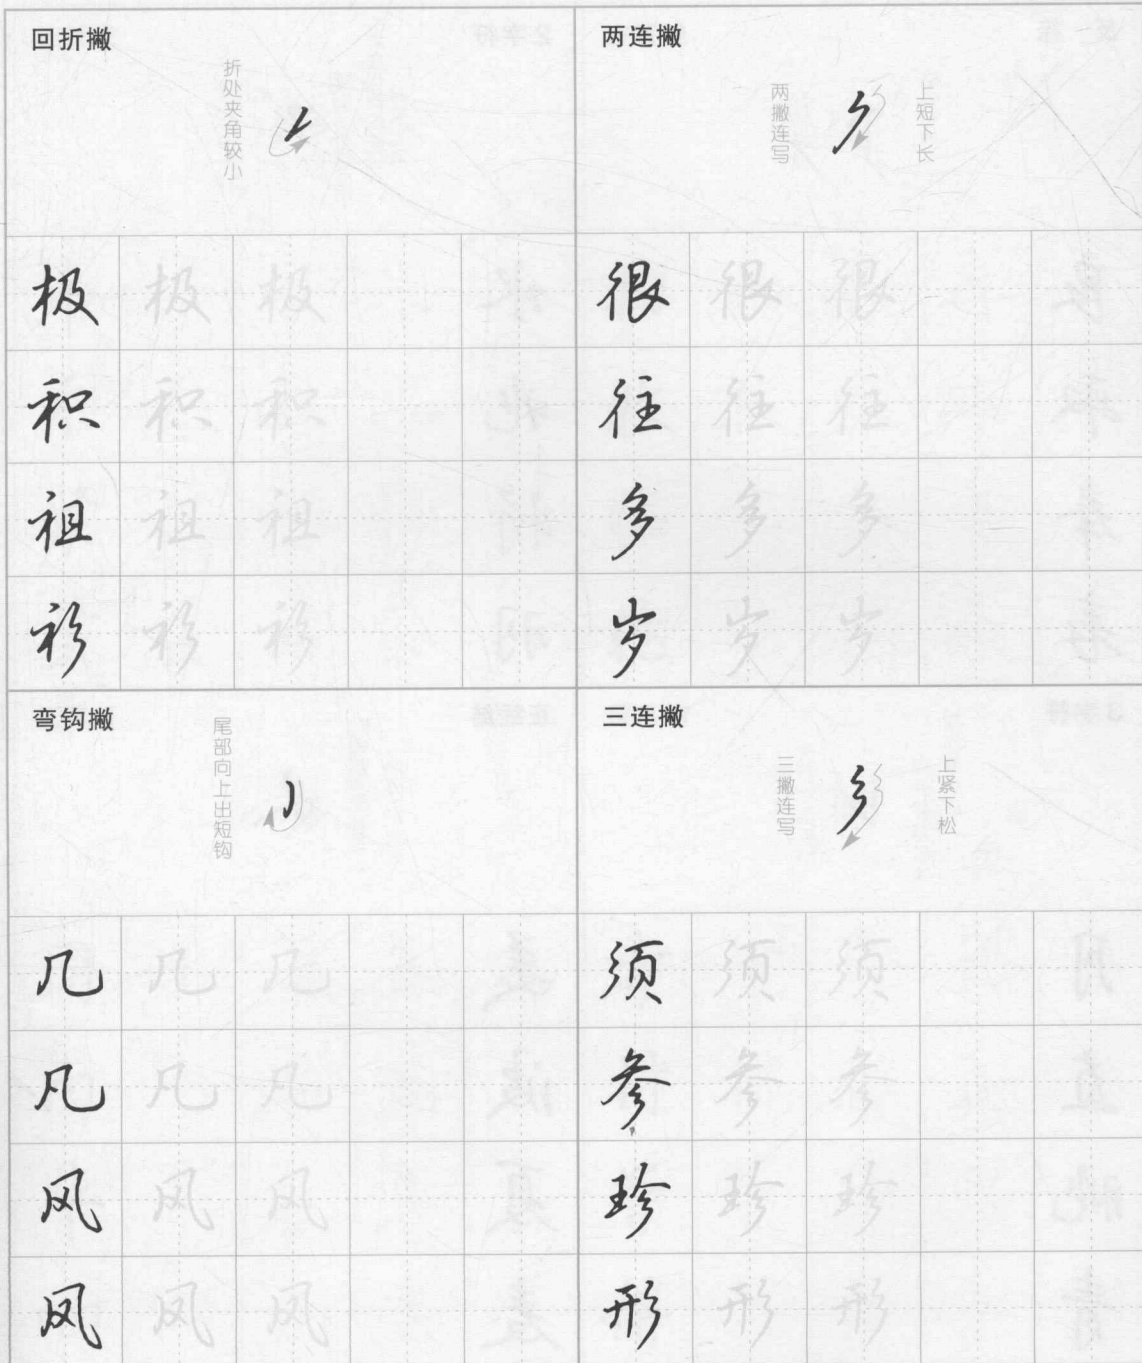 回折撇
折处夹角较小
极 极 极
积 积 积
祖 祖 祖
衫 衫 衫
两连撇
两撇连写
上短下长
很 很 很
往 往 往
多 多 多
岁 岁 岁
弯钩撇
尾部向上出短钩
几 几 几
凡 凡 凡
风 风 风
凤 凤 凤
三连撇
三撇连写
上紧下松
须 须 须
参 参 参
珍 珍 珍
形 形 形